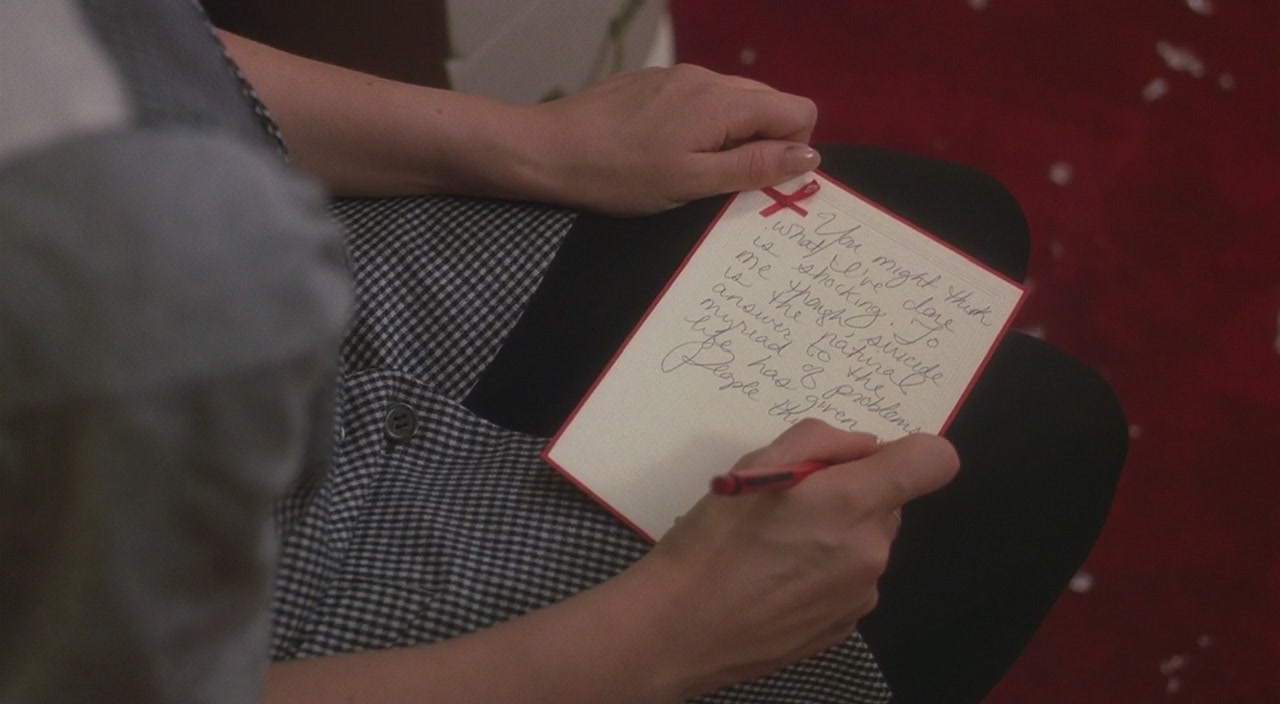 You might think
what I've done
is shocking. To
me though, suicide
is the natural
answer to the
myriad of problems
life has given
People